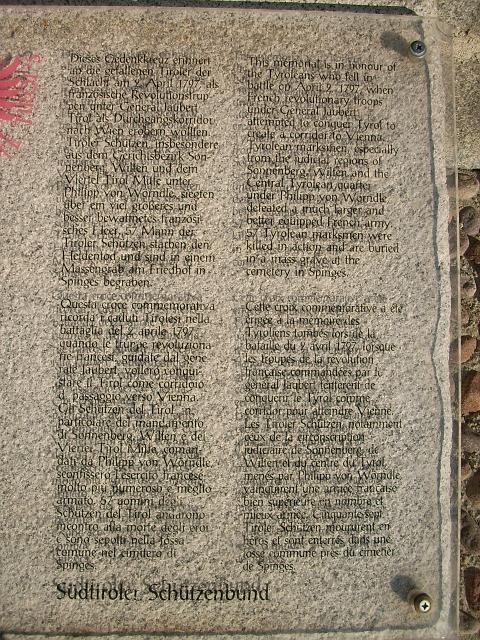 Dieses Gedenkkreuz erinnert
an die gefallenen Tiroler der
Schlacht am 2. April 1797, als
französische Revolutionstrup-
pen unter General Jaubert
Tirol als Durchgangskorridor
nach Wien erobern wollten.
Tiroler Schützen, insbesondere
aus dem Gerichtsbezirk Son-
nenberg, Wilten und dem
Viertel Tirol Mitte unter
Philipp von Wörndle, siegten
über ein viel größeres und
besser bewaffnetes französi-
sches Heer. 57 Mann der
Tiroler Schützen starben den
Heldentod und sind in einem
Massengrab am Friedhof in
Spinges begraben.
This memorial is in honour of
the Tyroleans who fell in
battle on April 2, 1797, when
French revolutionary troops
under General Jaubert
attempted to conquer Tyrol to
create a corridor to Vienna.
Tyrolean marksmen, especially
from the judicial regions of
Sonnenberg, Wilten and the
Central Tyrolean quarter
under Philipp von Wörndle
defeated a much larger and
better equipped French army.
57 Tyrolean marksmen were
killed in action and are buried
in a mass grave at the
cemetery in Spinges.
Questa croce commemorativa
ricorda i caduti Tirolesi nella
battaglia del 2 aprile 1797,
quando le truppe rivoluziona-
rie francesi, guidate dal gene-
rale Jaubert, vollero conqui-
stare il Tirol come corridoio
di passaggio verso Vienna.
Gli Schützen del Tirol, in
particolare del mandamento
di Sonnenberg, Wilten e del
Viertel Tirol Mitte, coman-
dati da Philipp von Wörndle,
sconfissero l'esercito francese
molto più numeroso e meglio
armato. 57 uomini degli
Schützen del Tirol andarono
incontro alla morte degli eroi
e sono sepolti nella fossa
comune nel cimitero di
Spinges.
Cette croix commémorative a été
érigée à la mémoire des
Tyroliens tombés lors de la
bataille du 2 avril 1797, lorsque
les troupes de la révolution
française commandées par le
général Jaubert tentèrent de
conquérir le Tyrol comme
corridor pour atteindre Vienne.
Les Tiroler Schützen, notamment
ceux de la circonscription
judiciaire de Sonnenberg, de
Wilten et du centre du Tyrol,
menés par Philipp von Wörndle
vainquirent une armée française
bien supérieure en nombre et
mieux armée. Cinquante-sept
Tiroler Schützen moururent en
héros et sont enterrés dans une
fosse commune près du cimetière
de Spinges.
Südtiroler Schützenbund